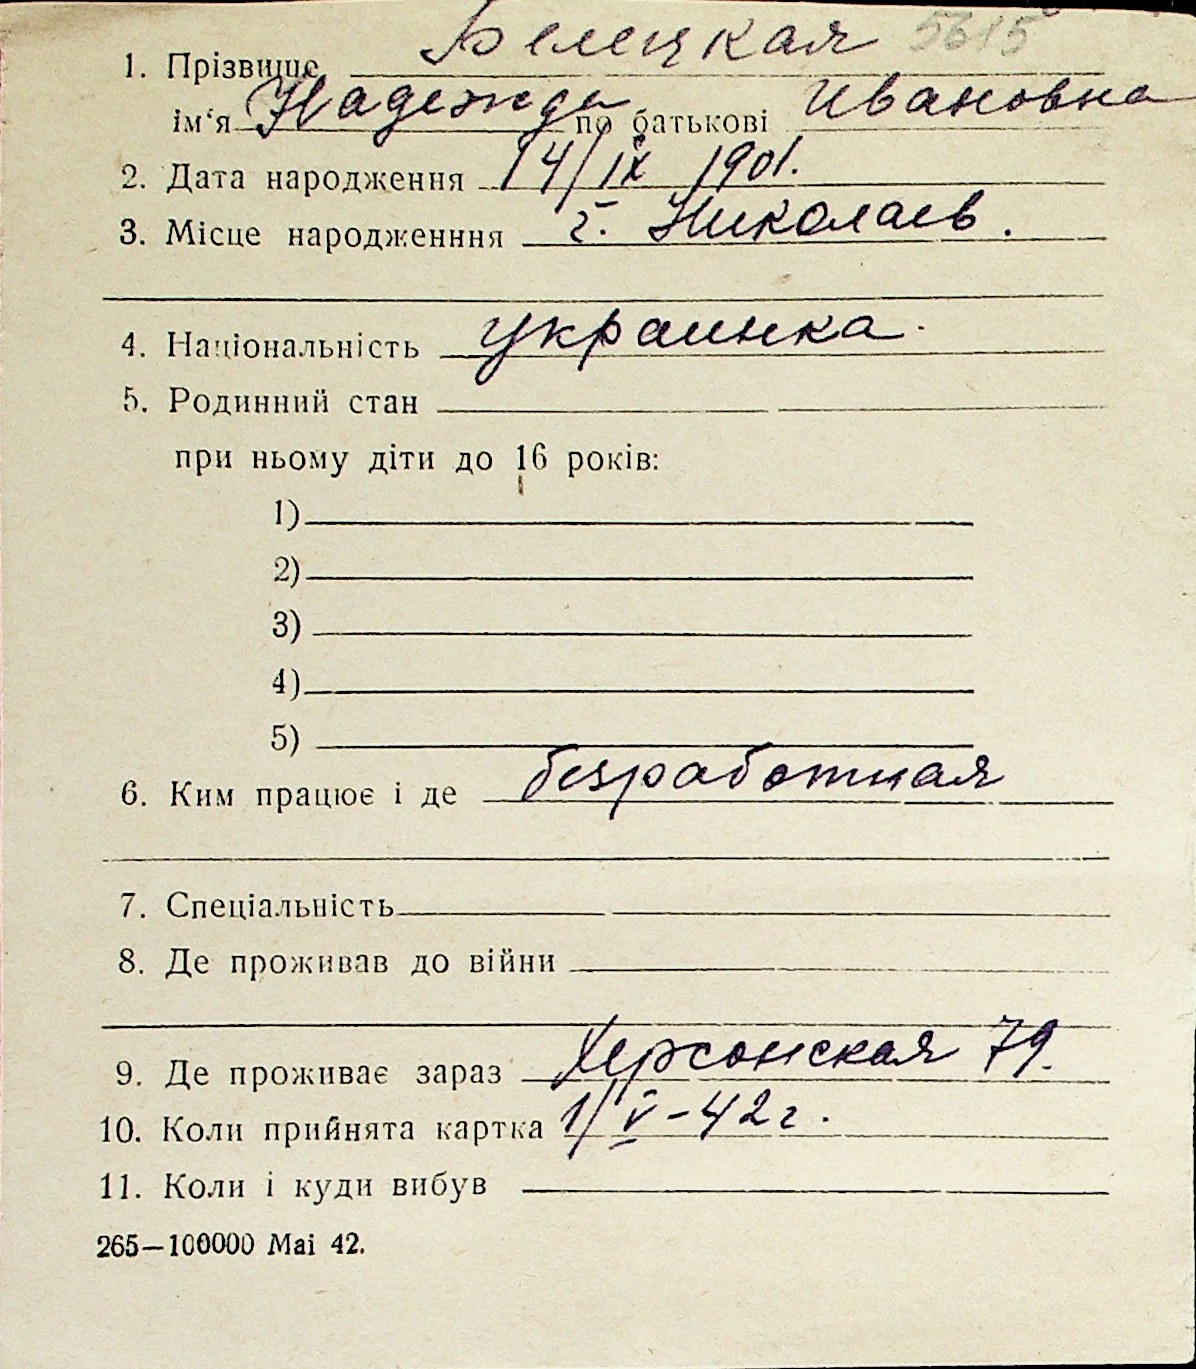 1. Прізвище Белецкая 5615
ім‘я Надежда по батькові Ивановна
2. Дата народження 14/IX 1901.
3. Місце народженння г. Николаев.
4. Національність украинка.
5. Родинний стан
при ньому діти до 16 років:
1)
2)
3)
4)
5)
6. Ким працює і де безработная
7. Спеціальність
8. Де проживав до війни
9. Де проживає зараз Херсонская 79.
10. Коли прийнята картка 1/V-42 г.
11. Коли і куди вибув
265—100000 Mai 42.